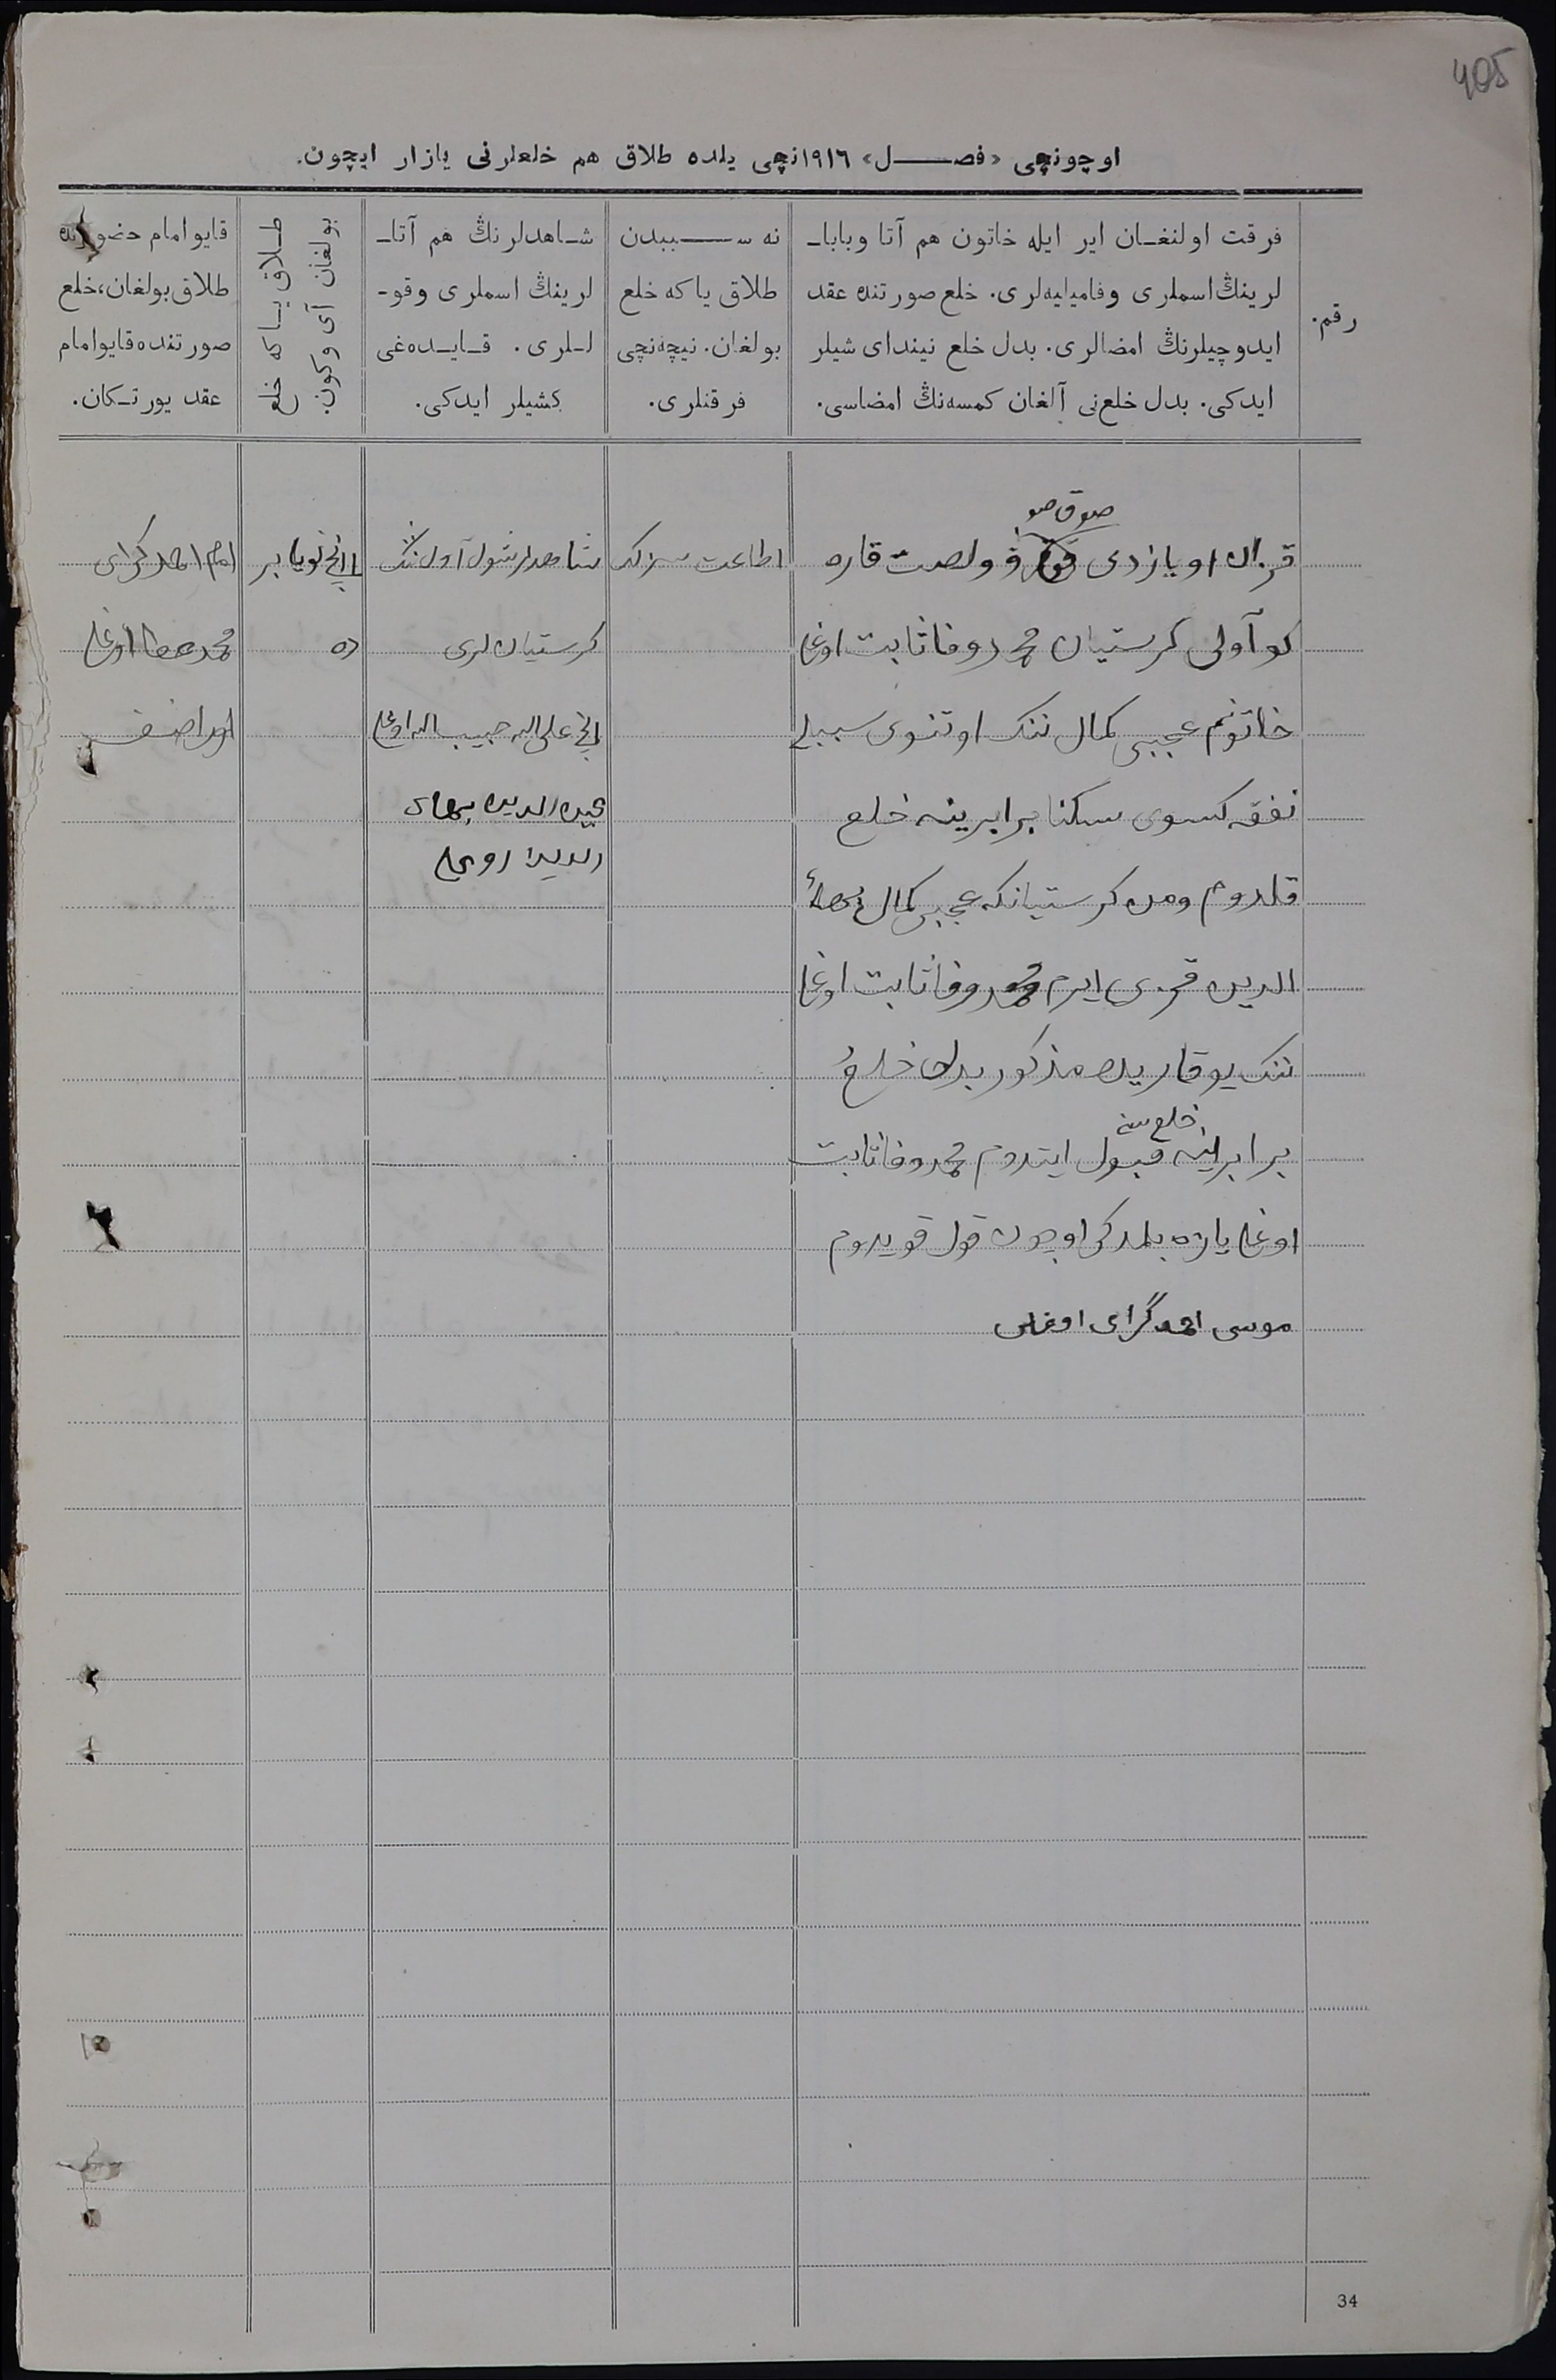 405
اوچونچی «فصل» ١٩١٦نچی یلده طلاق هم خلعلرنی یازار ایچون.
رقم.
فرقت اولنغان ایر ایله خاتون هم آتا وبابا-
لرینڭ اسملری وفامیلیه‌لری. خلع صورتنده عقد
ایدوچیلرنڭ امضالری. بدل خلع نیندای شیلر
ایدکی. بدل خلع‌نی آلغان کمسه‌نڭ امضاسی.
نه سببدن
طلاق یا که خلع
بولغان. نیچه‌نچی
فرقتلری.
شاهدلرنڭ هم آتا-
لرینڭ اسملری وقو-
للری. قایده‌غی
کشیلر ایدکی.
طلاق یا که خلع
بولغان آی وکون.
قایو امام حضورنده
طلاق بولغان، خلع
صورتنده قایو امام
عقد یورتکان.
صوق صو
قزان اویازدی وولصت قاره
کو آولی کرستیان محمدوفا ثابت اوغلی
خاتونم عجبی کمال ننک اوتنوی سببلی
نفقه کسوی سکنا برابرینه خلع
قلدوم ومن کرستیانکه عجبی کمال بهاء
الدین قزی ایرم محمدوفا ثابت اوغلی
ننک یوقاریده مذکور بدل خلع
خلع سنه
برابرینه قبول ایتدوم محمدوفا ثابت
اوغلی یازه بلمدکی اوچون قول قویدوم
موسی احمدگرای اوغلی
اطاعت سزلک
شاهدلر شول آول ننک
کرستیان لری
حبیب الله اوغلی
الدین بهای
نچی نویابر
ده
امام احمد کرای
محمد اوغلی
34